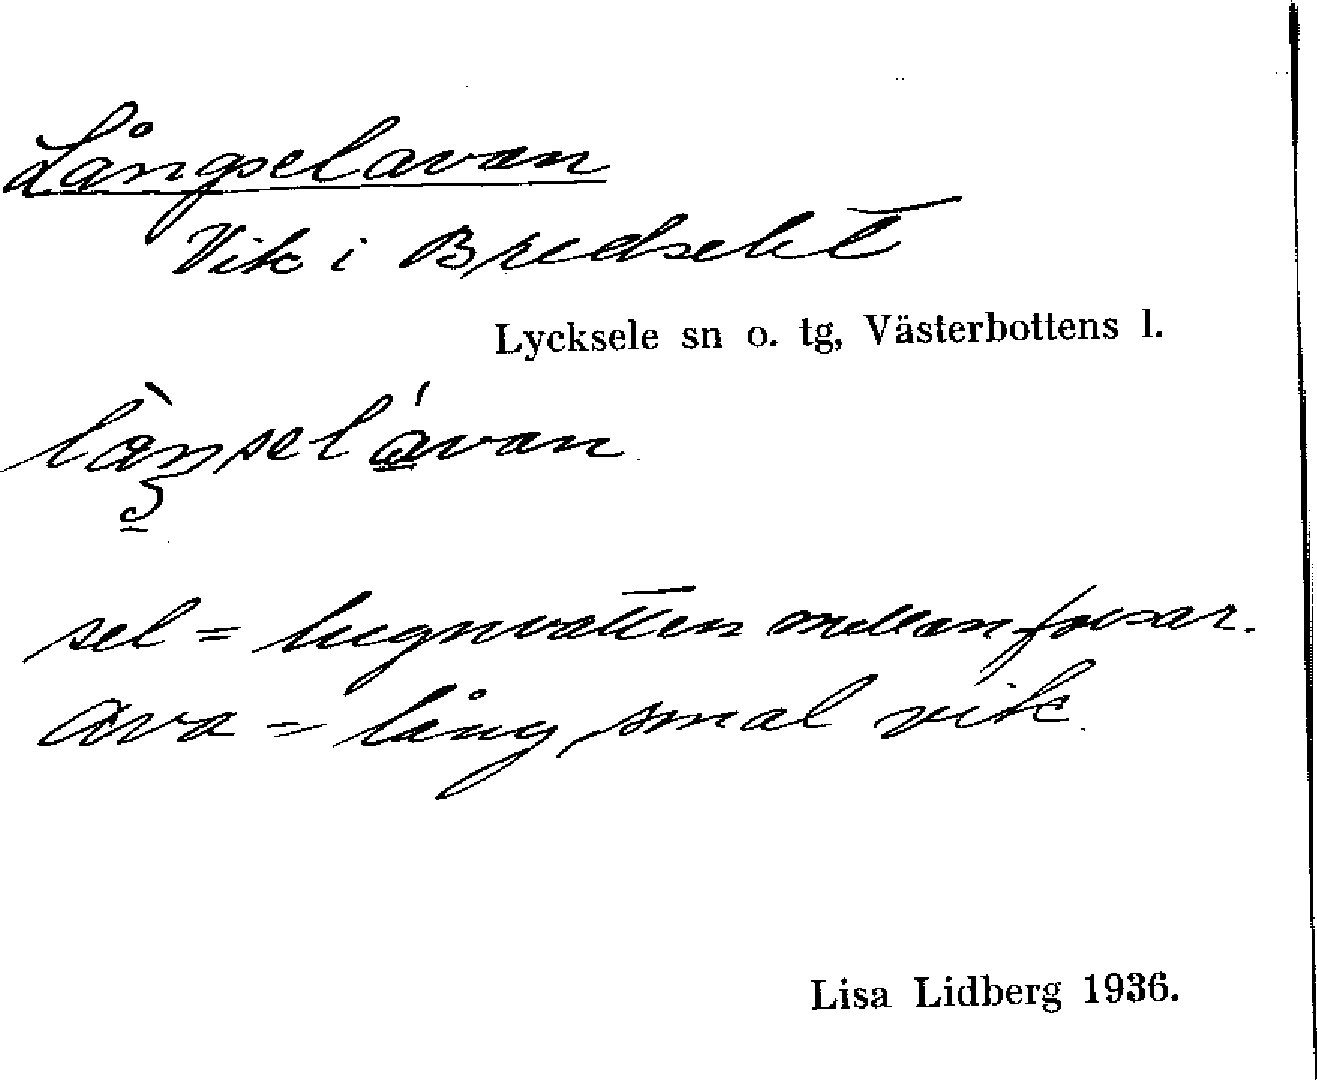 Långselavan
Vik i Bredselet
Lycksele sn o. tg, Västerbottens l.
làŋselávan
sel = lugnvatten mellan forsar.
ava = lång, smal vik.
Lisa Lidberg 1936.